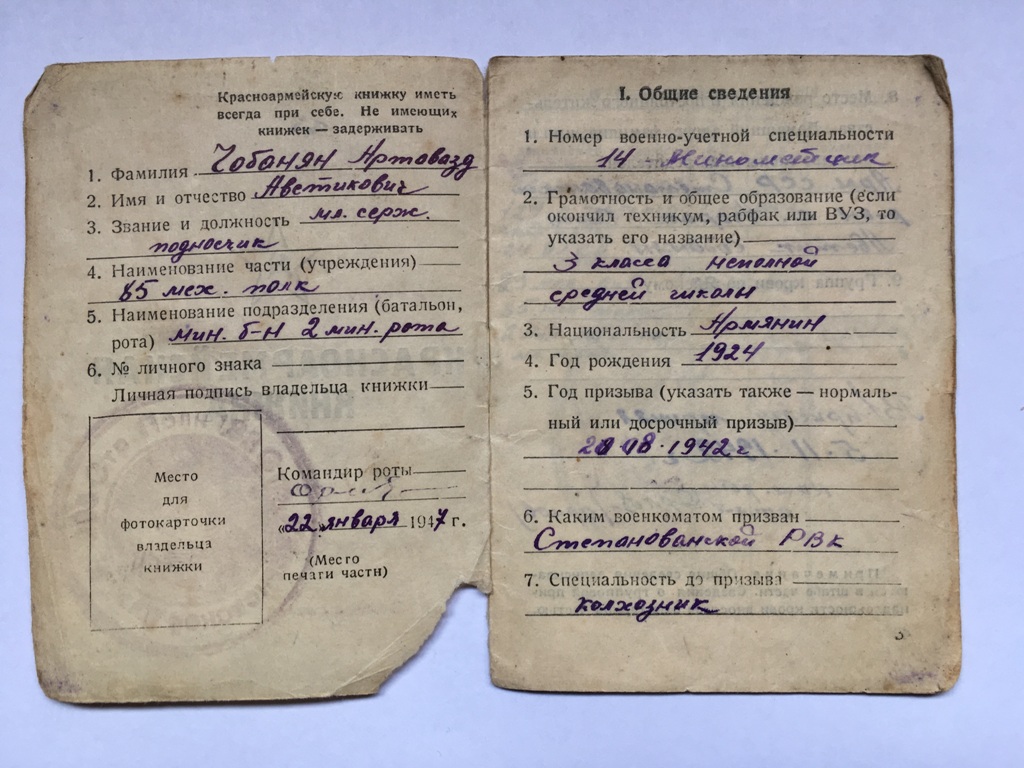 Красноармейскую книжку иметь
всегда при себе. Не имеющих
книжек — задерживать
1. Фамилия Чобанян Артавазд
2. Имя и отчество Аветикович
3. Звание и должность мл. серж.
подносчик
4. Наименование части (учреждения)
85 мех. полк
5. Наименование подразделения (батальон,
рота) мин. б-н 2 мин. рота
6. № личного знака
Личная подпись владельца книжки
Место
для
фотокарточки
владельца
книжки
Командир роты
«22» января 1947 г.
(Место
печати части)
I. Общие сведения
1. Номер военно-учетной специальности
14 - Минометчик
2. Грамотность и общее образование (если
окончил техникум, рабфак или ВУЗ, то
указать его название)
3 класса неполной
средней школы
3. Национальность Армянин
4. Год рождения 1924
5. Год призыва (указать также — нормаль-
ный или досрочный призыв)
08.1942 г
6. Каким военкоматом призван
Степанованской РВК
7. Специальность до призыва
колхозник
3